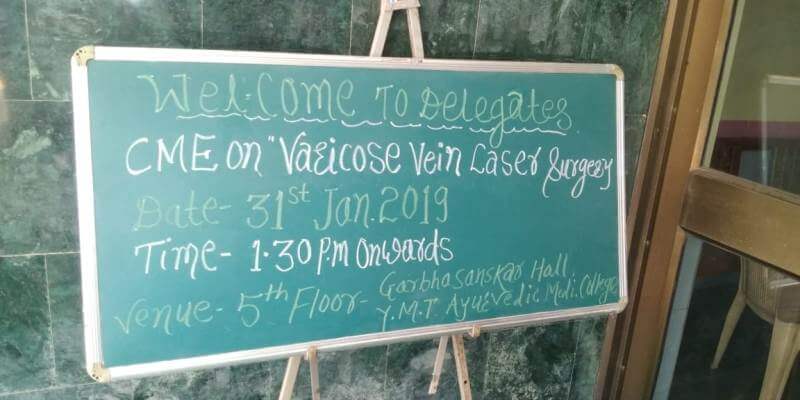 Welcome To Delegates
CME on "Varicose Vein Laser Surgery
Date- 31st Jan. 2019
Time- 1.30 p.m onwards
Venue- 5th Floor- Garbhasanskar Hall,
Y.M.T. Ayurvedic Medi. College